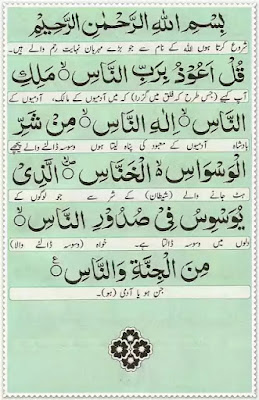 بِسْمِ اللهِ الرَّحْمٰنِ الرَّحِيْمِ
شروع کرتا ہوں اللہ کے نام سے جو بڑے مہربان نہایت رحم والے ہیں۔
قُلْ اَعُوْذُ بِرَبِّ النَّاسِ ۙ مَلِكِ
آپ کہیے (جس طرح کہ فلق میں گزرا) کہ میں آدمیوں کے مالک، آدمیوں کے
النَّاسِ ۙ اِلٰهِ النَّاسِ ۙ مِنْ شَرِّ
بادشاہ آدمیوں کے معبود کی پناہ لیتا ہوں وسوسہ ڈالنے والے پیچھے
الْوَسْوَاسِ ۙ الْخَنَّاسِ ۙ الَّذِيْ
ہٹ جانے والے (شیطان) کے شر سے جو لوگوں کے
يُوَسْوِسُ فِيْ صُدُوْرِ النَّاسِ ۙ
دلوں میں وسوسہ ڈالتا ہے۔ خواہ (وسوسہ ڈالنے والا)
مِنَ الْجِنَّةِ وَالنَّاسِ
جن ہو یا آدمی (ہو)۔